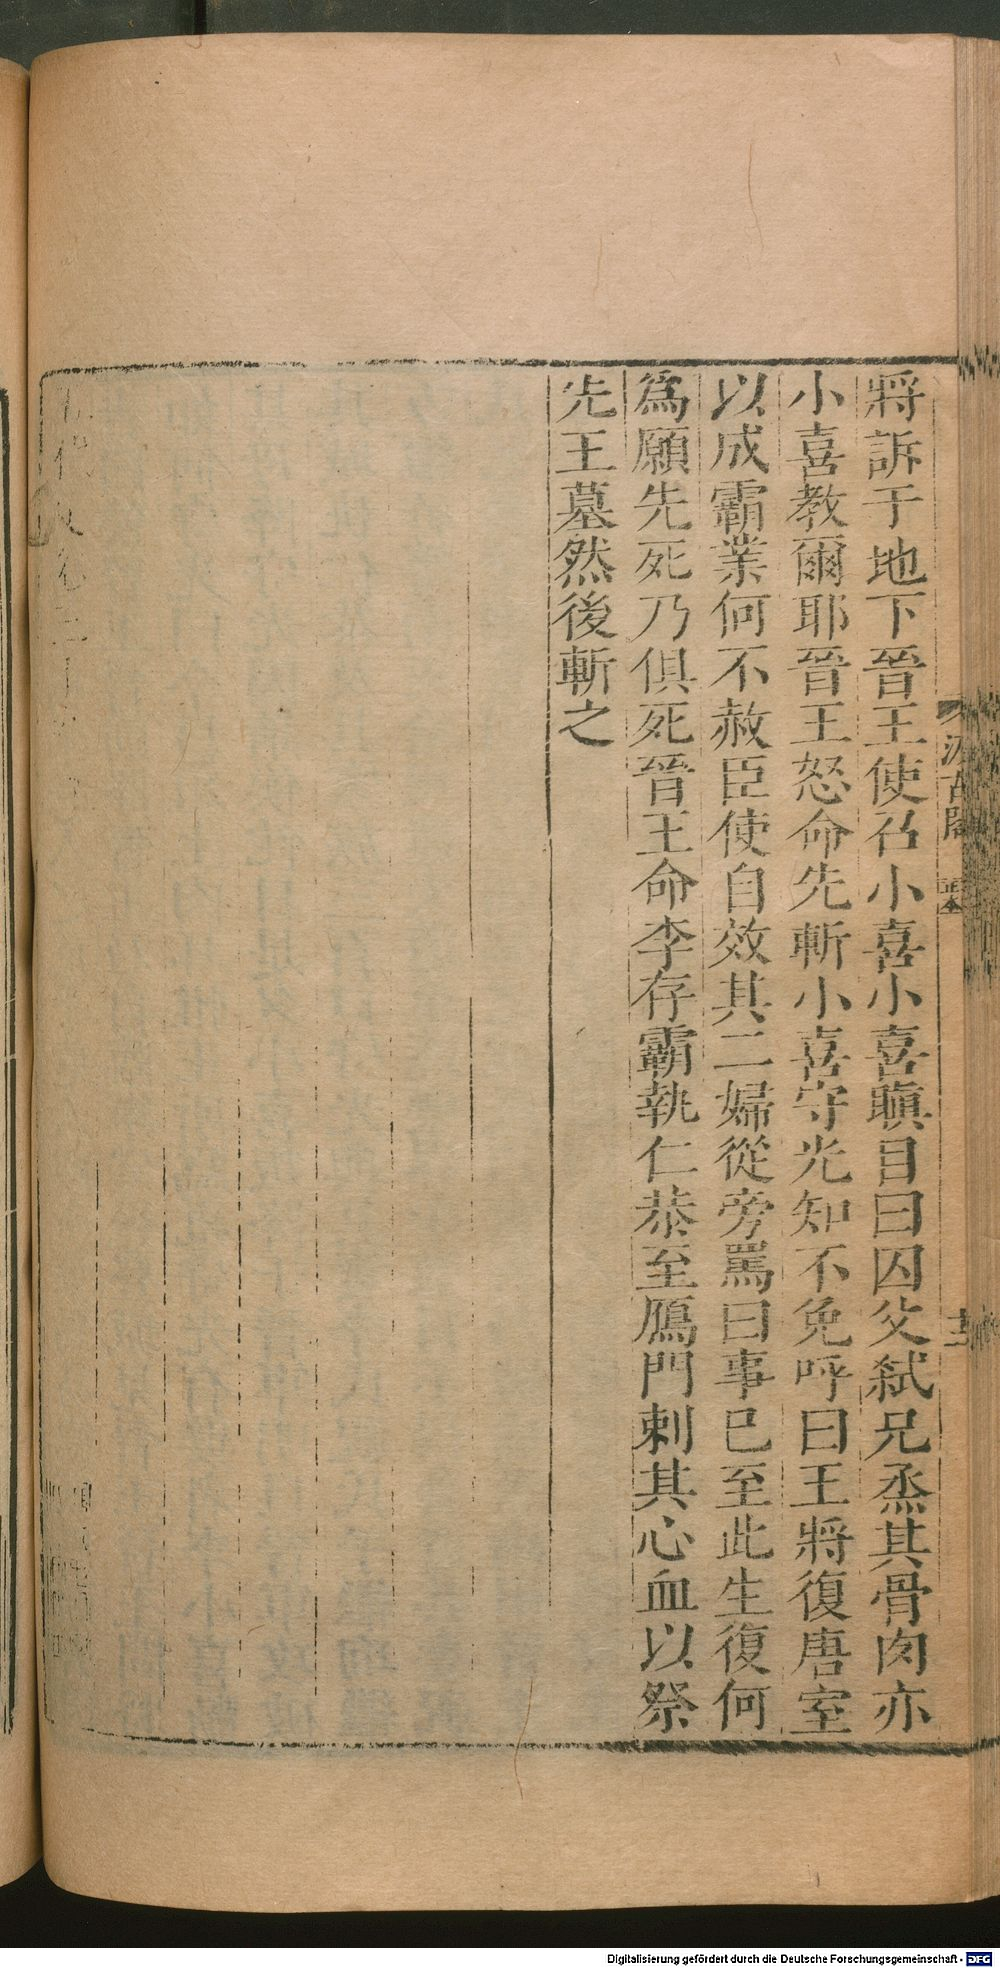 將訴于地下晉王使召小喜小喜瞋目曰囚父弑兄烝其骨肉亦
小喜教爾耶晉王怒命先斬小喜守光知不免呼曰王將復唐室
以成霸業何不赦臣使自效其二婦從旁罵曰事已至此生復何
爲願先死乃俱死晉王命李存霸執仁恭至鴈門刺其心血以祭
先王墓然後斬之
Digitalisierung gefördert durch die Deutsche Forschungsgemeinschaft - DFG